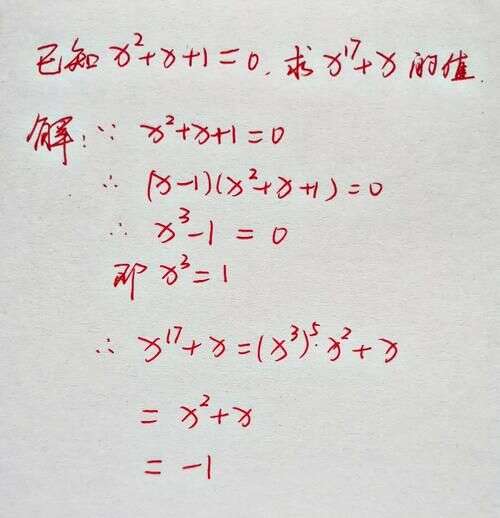 已知 x²+x+1=0. 求 x¹⁷+x 的值.
解: ∵ x²+x+1=0
∴ (x-1)(x²+x+1)=0
∴ x³-1=0
即 x³=1
∴ x¹⁷+x=(x³)⁵·x²+x
= x²+x
= -1